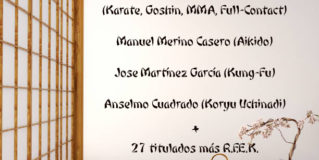 (Karate, Goshin, MMA, Full-Contact)
Manuel Merino Casero (Aikido)
Jose Martínez García (Kung-Fu)
Anselmo Cuadrado (Koryu Uchinadi)
+
27 titulados más R.F.E.K.